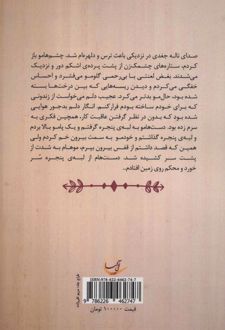 صدای ناله جغدی در نزدیکی باعث ترس و دلهره‌ام شد. چشم‌هامو باز
کردم، ستاره‌های چشمک‌زن از پشت پرده‌ی اشکم دور و نزدیک
می‌شدند. بغض لعنتی با بی‌رحمی گلومو می‌فشرد و احساس
خفگی می‌کردم و دیدن ریسه‌هایی که بین درخت‌ها بسته
شده بود، حال‌مو بدتر می‌کرد. عجیب دلم می‌خواست از زندونی
که برای خودم ساخته بودم فرار کنم. انگار دلم بدجور هوایی
شده بود که بدون در نظر گرفتن عاقبت کار، همچین فکری به
سرم زده بود. دست‌هامو به لبه‌ی پنجره گرفتم و یک پامو بالا بردم
و لبه‌ی پنجره گذاشتم و خودمو به سمت بیرون خم کردم ولی
همین که قصد داشتم از قفس بیرون بپرم، موهام به شدت از
پشت سر کشیده شد. دست‌هام از لبه‌ی پنجره سُر
خورد و محکم روی زمین افتادم.
ISBN 978-622-6462-74-7
9 786226 462747
قیمت ۱۰۰۰۰۰ تومان